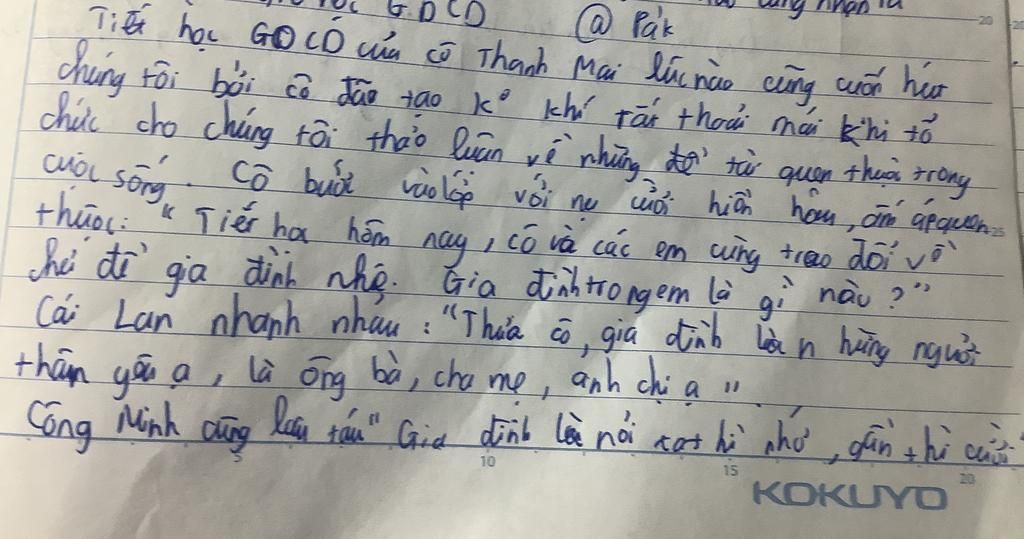 GDCD
Tiết học GDCD của cô Thanh Mai lúc nào cũng cuốn hút @ Pák
chúng tôi bởi cô đã tạo k° khí rất thoải mái khi tổ
chức cho chúng tôi thảo luận về những đề tài quen thuộc trong
cuộc sống. Cô bước vào lớp với nụ cười hiền hậu, ấm áp quen
thuộc: "Tiết học hôm nay, cô và các em cùng trao đổi về
chủ đề gia đình nhé. Gia đình trong em là gì nào?"
Cái Lan nhanh nhau: "Thưa cô, gia đình là những người
thân yêu ạ, là ông bà, cha mẹ, anh chị ạ".
Công Minh cũng láu táu "Gia đình là nơi xa thì nhớ, gần thì cười
5 10 15 20
KOKUYO